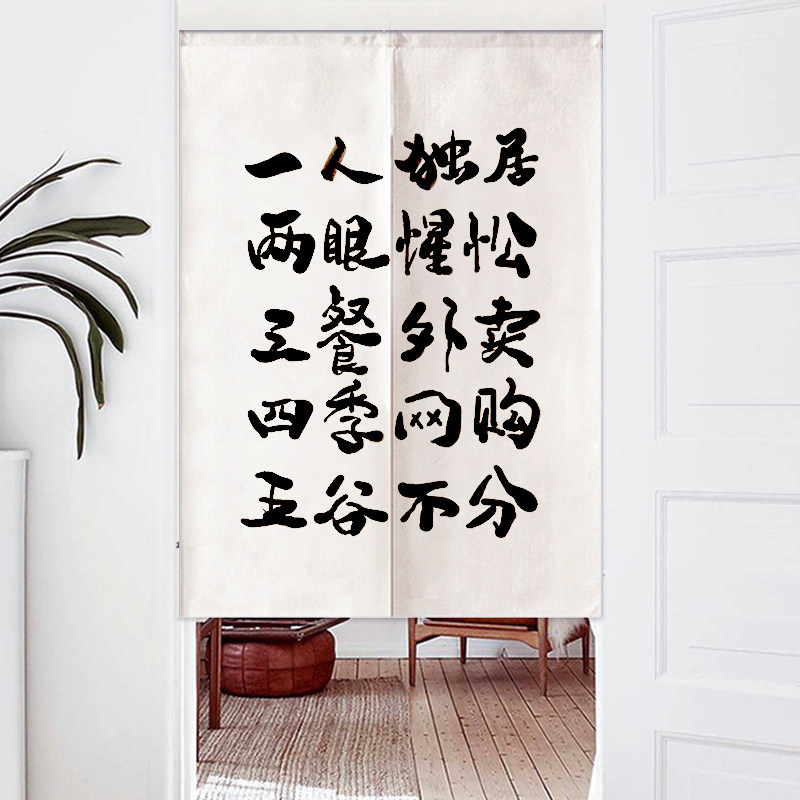 一人独居
两眼惺忪
三餐外卖
四季网购
五谷不分